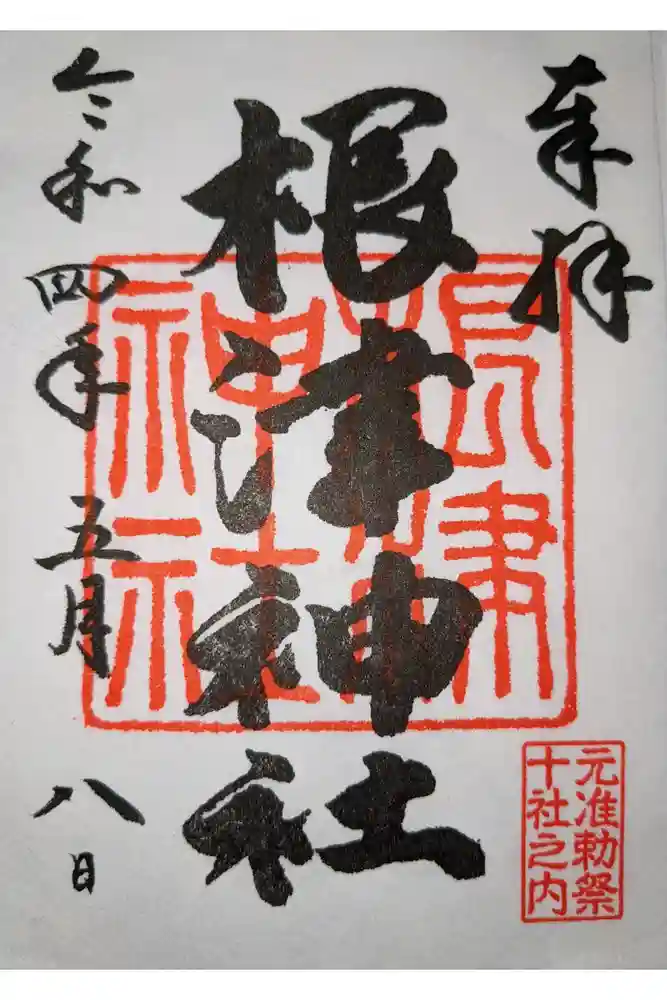 奉拝
根津神社
根津
神社
元准勅祭
十社之内
令和四年五月八日